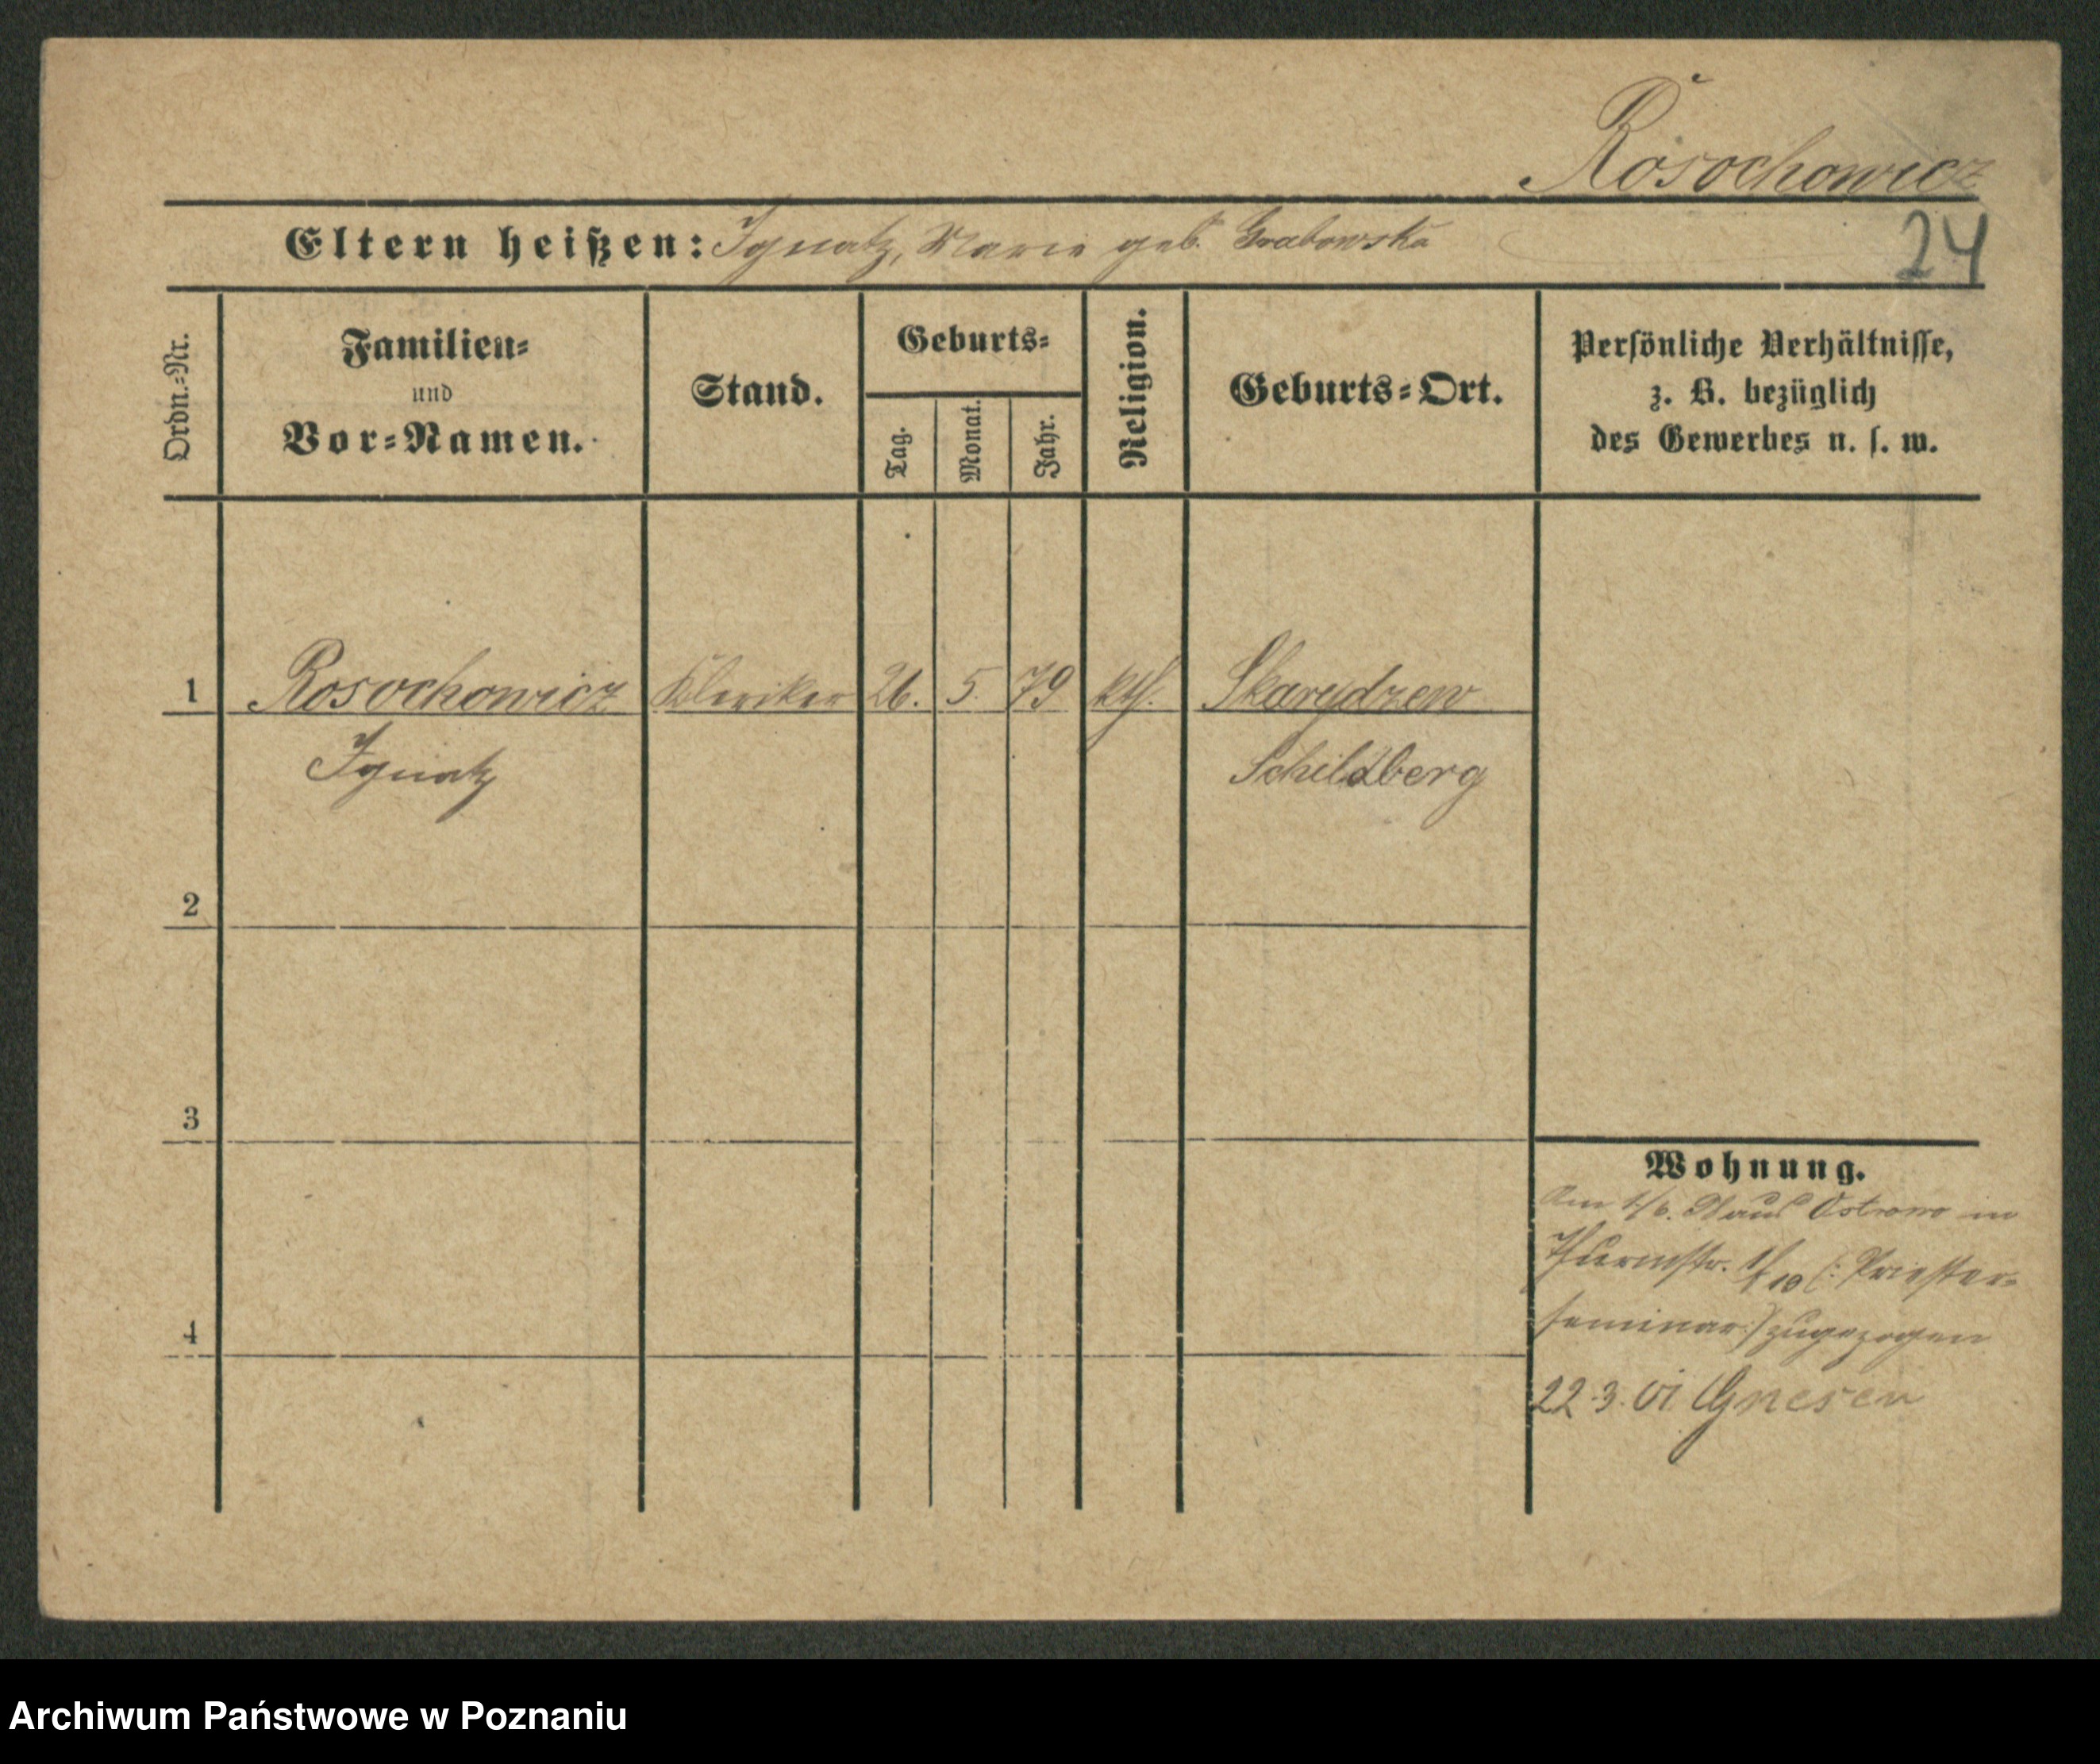 Rosochowicz
Eltern heißen: Ignatz, Marie geb. Grabowska
24
Ordn.-Nr.
Familien-
und
Vor-Namen.
Stand.
Geburts-
Tag.
Monat.
Jahr.
Religion.
Geburts-Ort.
Persönliche Verhältnisse,
z. B. bezüglich
des Gewerbes u. s. w.
1 Rosochowicz Kleriker 26. 5. 79 kth. Skarydzew
Ignatz Schildberg
2
3
Wohnung.
Am 1/6. aus Ostrowo in
Thurmstr. (: Priester-
seminar :) zugezogen
4
22.3. 01 Gnesen
Archiwum Państwowe w Poznaniu